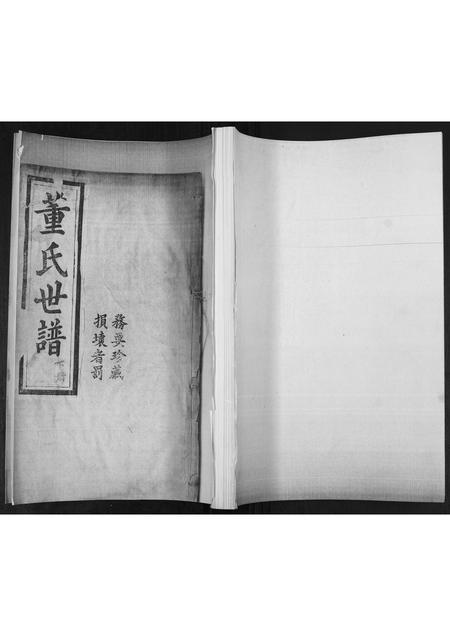 董氏世譜
下冊
務要珍藏
損壞者罰